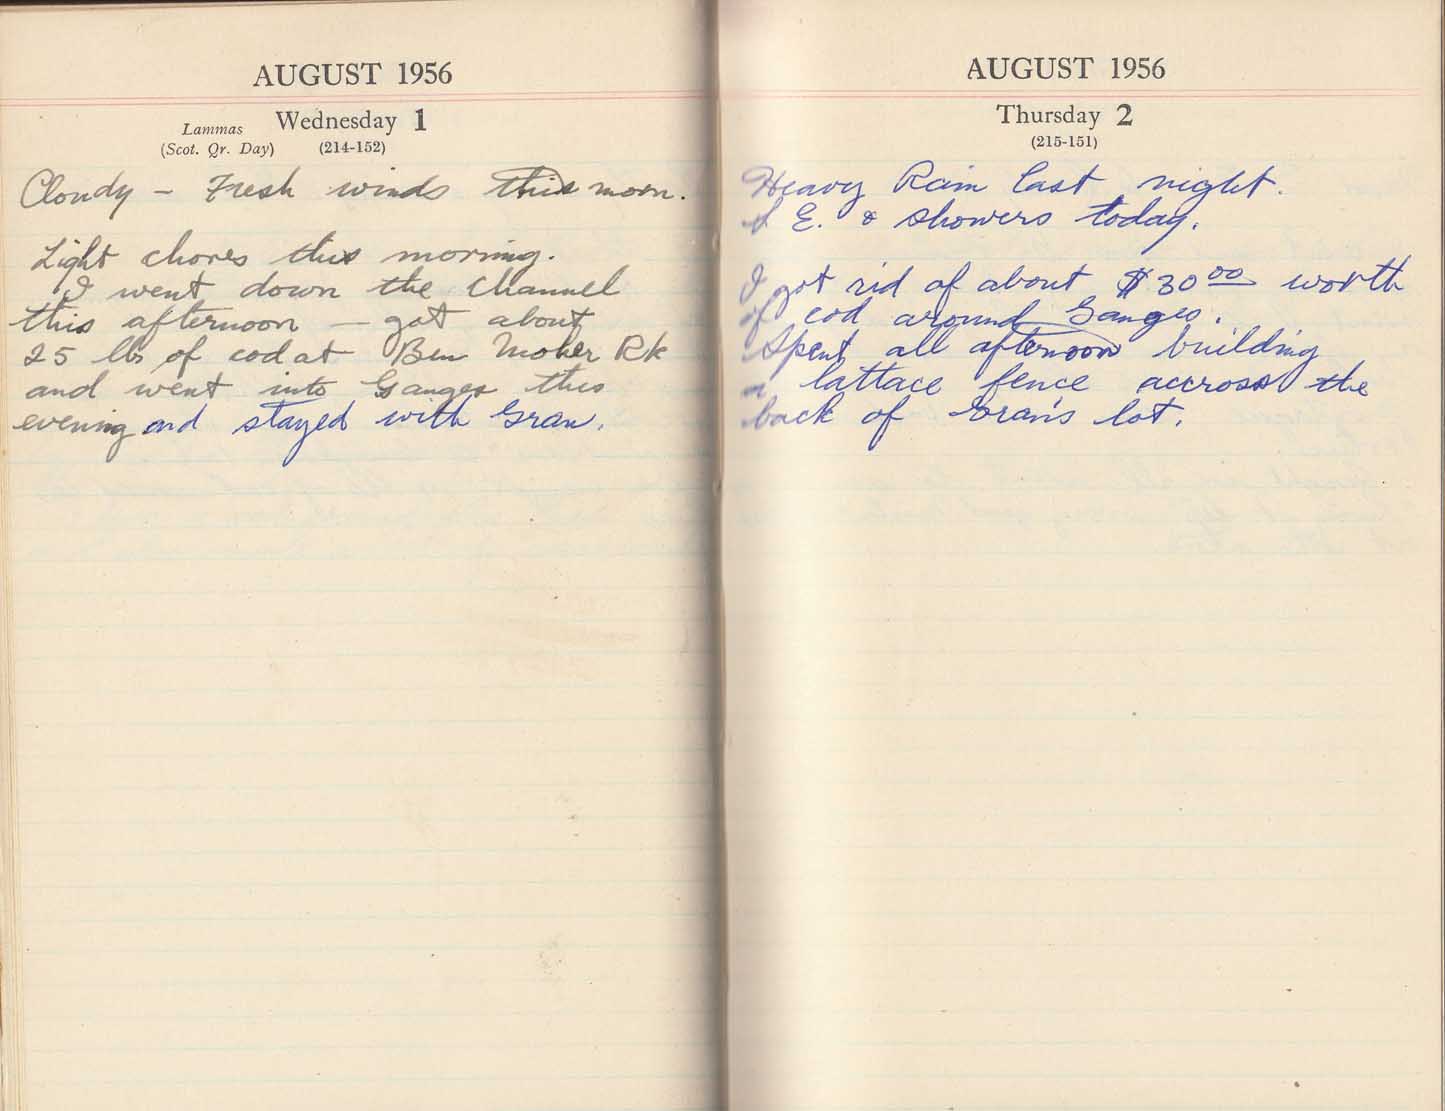 AUGUST 1956
Lammas Wednesday 1
(Scot. Qr. Day) (214-152)
Cloudy - Fresh winds this morn.
Light chores this morning.
I went down the channel
this afternoon - got about
25 lbs of cod at Ben Moher Rk
and went into Ganges this
evening and stayed with Gran.
AUGUST 1956
Thursday 2
(215-151)
Heavy Rain last night.
S E. & showers today.
I got rid of about $30.00 worth
of cod around Ganges.
Spent all afternoon building
a lattace fence accross the
back of Gran's lot.